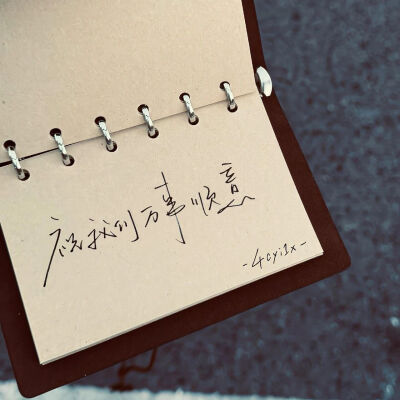 祝我们万事顺意
-4cyi1x-